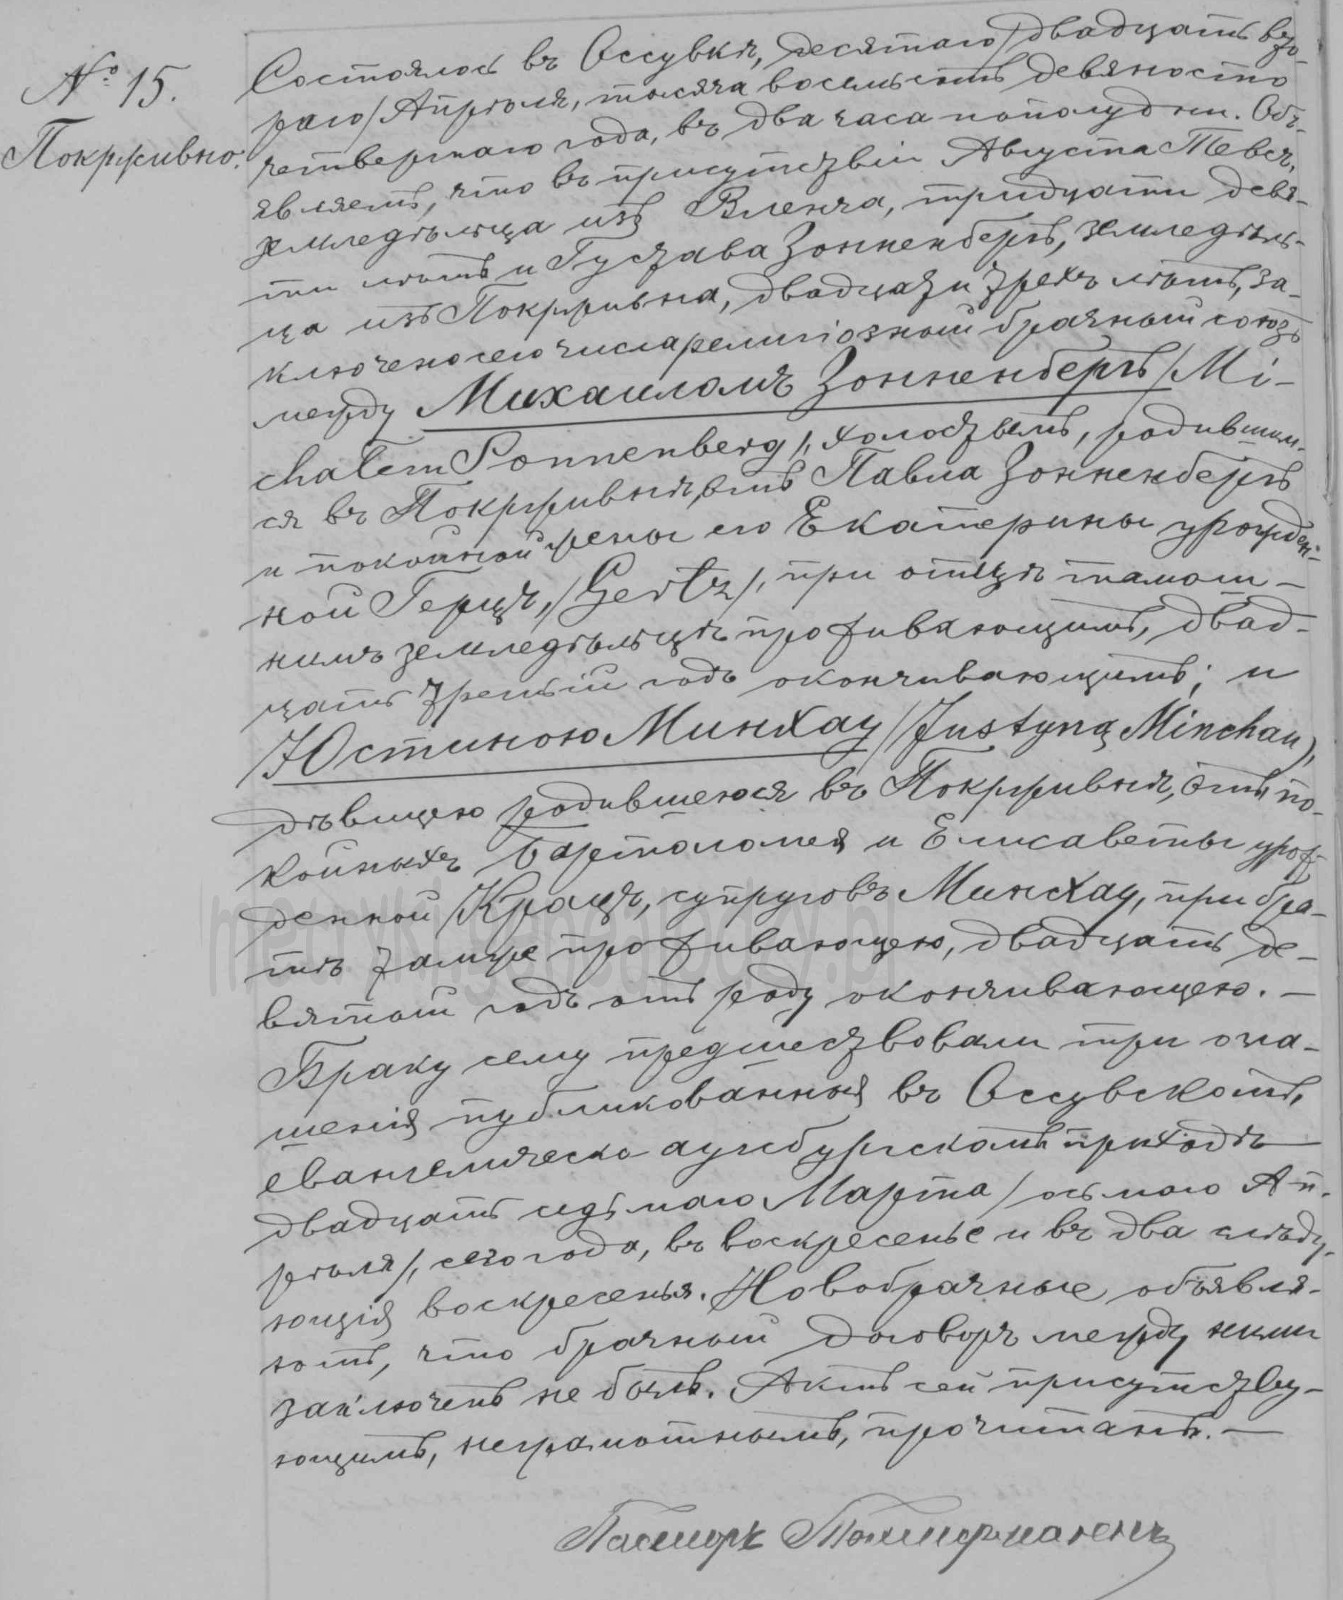 № 15.
Покрживно.
Состоялось въ Оссувкѣ, десятаго /двадцать вто-
раго/ Апрѣля, тысяча восемьсотъ девяносто
четвертаго года, въ два часа пополудни. Объ-
являемъ, что въ присутствіи Августа Тевсъ,
земледѣльца изъ Вленча, тридцати девя-
ти лѣтъ и Густава Зонненбергъ, земледѣль-
ца изъ Покрживна, двадцати трехъ лѣтъ, за-
ключено сего числа религіозный брачный союзъ
между Михаиломъ Зонненбергъ /Mi-
chałem Sonnenberg/, холостымъ, родившим-
ся въ Покрживнѣ, отъ Павла Зонненбергъ
и покойной жены его Екатерины урожден-
ной Герцъ, /Gertz/, при отцѣ тамош-
нимъ земледѣльцѣ проживающимъ, двад-
цать третій годъ окончивающимъ; и
Юстиною Минхау /Justyną Minchau/,
дѣвицею родившеюся въ Покрживнѣ, отъ по-
койныхъ Бартоломея и Елисаветы урож-
денной Крацъ, супруговъ Минхау, при бра-
тѣ тамже проживающею, двадцать де-
вятый годъ отъ роду окончивающею. —
Браку сему предшествовали три огла-
шенія публикованныя въ Оссувскомъ,
евангелическо аугсбургскомъ приходѣ
двадцать седьмаго Марта /осьмаго Ап-
рѣля/, сего года, въ воскресенье и въ два слѣду-
ющія воскресенья. Новобрачные объявля-
ютъ, что брачный договоръ между ними
заключенъ не былъ. Актъ сей присутству-
ющимъ, неграмотнымъ, прочитанъ. —
Пасторъ